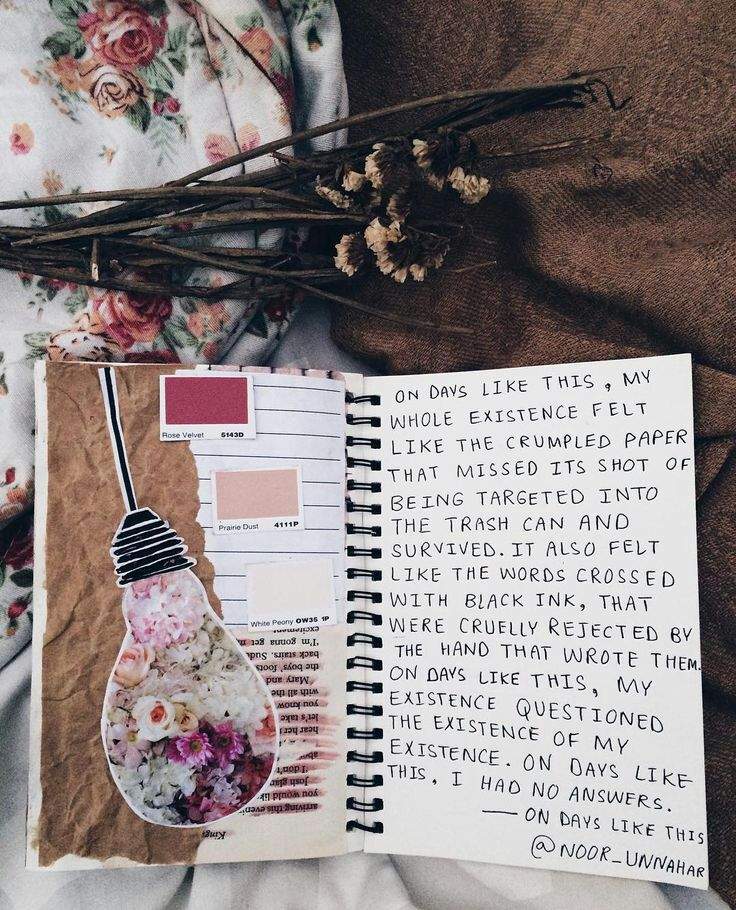 Rose Velvet 5143D
Prairie Dust 4111P
White Peony OW35 1P
excitement
I'm gonna get
back stairs. Sud
the boys' foots
Mary and
with all the
you know
let's take
hear her
about
I don't
Josh glan
you would li
arriving this eveni
Kings
ON DAYS LIKE THIS, MY
WHOLE EXISTENCE FELT
LIKE THE CRUMPLED PAPER
THAT MISSED ITS SHOT OF
BEING TARGETED INTO
THE TRASH CAN AND
SURVIVED. IT ALSO FELT
LIKE THE WORDS CROSSED
WITH BLACK INK, THAT
WERE CRUELLY REJECTED BY
THE HAND THAT WROTE THEM.
ON DAYS LIKE THIS, MY
EXISTENCE QUESTIONED
THE EXISTENCE OF MY
EXISTENCE. ON DAYS LIKE
THIS, I HAD NO ANSWERS.
— ON DAYS LIKE THIS
@NOOR_UNNAHAR